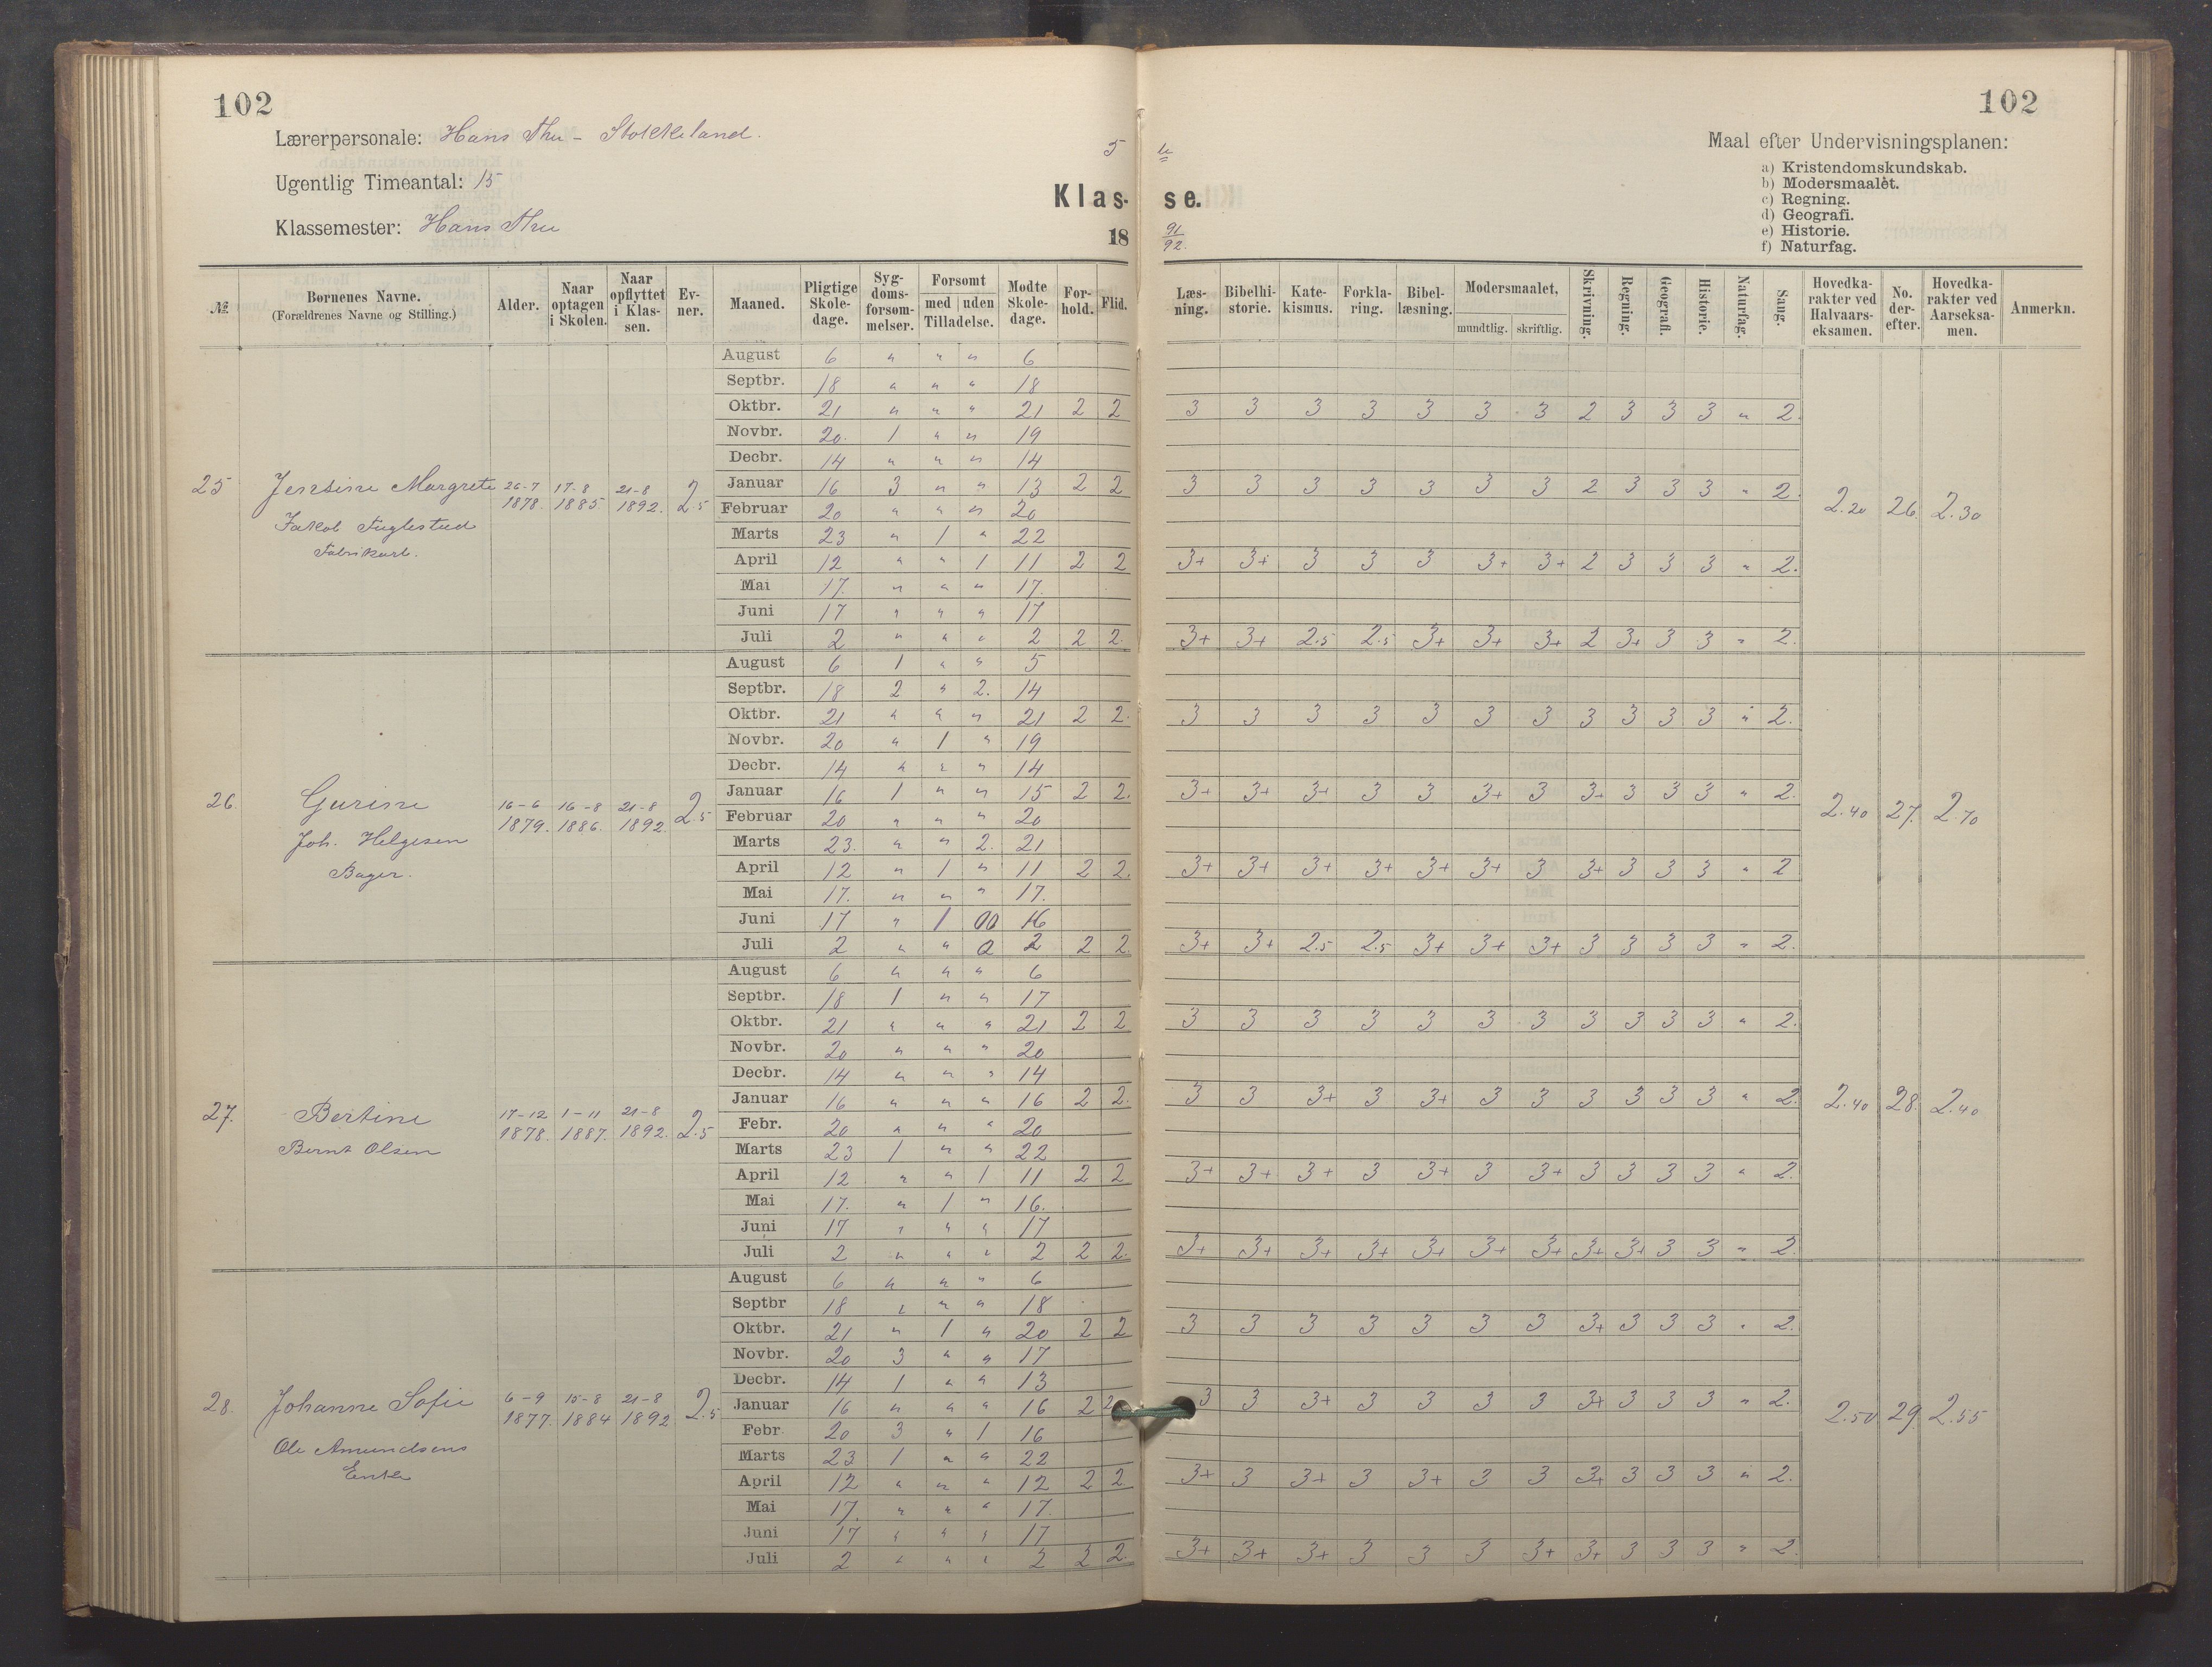 102
102
Lærerpersonale: Hans Thu - Stokkeland.
Ugentlig Timeantal: 15
Klassemester: Hans Thu
5 te
Klas- se.
18 91/92.
Maal efter Undervisningsplanen:
a) Kristendomskundskab.
b) Modersmaalet.
c) Regning.
d) Geografi.
e) Historie.
f) Naturfag.
№ | Børnenes Navne. (Forældrenes Navne og Stilling.) | Alder. | Naar optagen i Skolen. | Naar opflyttet i Klassen. | Evner. | Maaned. | Pligtige Skoledage. | Sygdomsforsømmelser. | Forsømt med Tilladelse. | uden Tilladelse. | Mødte Skoledage. | Forhold. | Flid. | Læsning. | Bibelhistorie. | Katekismus. | Forklaring. | Bibellæsning. | Modersmaalet, mundtlig. | skriftlig. | Skrivning. | Regning. | Geografi. | Historie. | Naturfag. | Sang. | Hovedkarakter ved Halvaarseksamen. | No. derefter. | Hovedkarakter ved Aarseksamen. | Anmerkn.
25 Jensine Margrete 26-7 1878. 17-8 1885 21-8 1892. 2.5
Jakob Fuglestad
Fabrikarb.
2.20 26. 2.30
August 6 " " " 6
Septbr. 18 " " " 18
Oktbr. 21 " " " 21 2 2 3 3 3 3 3 3 3 2 3 3 3 " 2.
Novbr. 20. 1 " " 19
Decbr. 14 " " " 14
Januar 16 3 " " 13 2 2 3 3 3 3 3 3 3 2 3 3 3 " 2.
Februar 20 " " " 20
Marts 23 " 1 " 22
April 12 " " 1 11 2 2 3+ 3+ 3 3 3 3+ 3+ 2 3 3 3 " 2.
Mai 17. " " " 17.
Juni 17 " " " 17
Juli 2 " " " 2 2 2. 3+ 3+ 2.5 2.5 3+ 3+ 3+ 2 3+ 3 3 " 2.
26. Gurine 16-6 1879. 16-8 1886. 21-8 1892. 2.5
Joh. Helgesen
Bager.
2.40 27. 2.70
August 6 1 " " 5
Septbr. 18 2 " 2. 14
Oktbr. 21 " " " 21 2 2. 3 3 3 3 3 3 3 3 3 3 3 " 2.
Novbr. 20 " 1 " 19
Decbr. 14 " " " 14
Januar 16 1 " " 15 2 2. 3+ 3+ 3+ 3 3 3+ 3 3+ 3 3 3 " 2.
Februar 20 " " " 20
Marts 23. " " 2. 21
April 12 " 1 " 11 2 2. 3+ 3+ 3+ 3+ 3+ 3+ 3 3+ 3 3 3 " 2
Mai 17. " " " 17.
Juni 17 " 1 16
Juli 2 " " 2 2 2. 3+ 3+ 2.5 2.5 3+ 3+ 3+ 3 3 3 3 " 2.
27. Bertine 17-12 1878. 1-11 1887. 21-8 1892. 2.5
Bernt Olsen
2.40 28. 2.40
August 6 " " " 6
Septbr. 18 1 " " 17
Oktbr. 21 " " " 21 2 2 3 3 3 3 3 3 3 3 3 3 3 " 2.
Novbr. 20 " " " 20
Decbr. 14 " " " 14
Januar 16 " " " 16 2 2. 3 3 3+ 3 3+ 3 3 3 3 3 3 " 2.
Febr. 20 " " " 20
Marts 23 1 " " 22
April 12 " " 1 11 2 2 3+ 3+ 3+ 3 3+ 3 3+ 3 3 3 3 " 2.
Mai 17. " 1 " 16.
Juni 17 " " " 17
Juli 2 " " " 2 2 2. 3+ 3+ 3+ 3+ 3+ 3+ 3+ 3+ 3+ 3 3 " 2.
28. Johanne Sofie 6-9 1877. 15-8 1884 21-8 1892 2.5
Ole Amundsens
Enke
2.50 29. 2.55
August 6 " " " 6
Septbr 18 " " " 18
Oktbr. 21 " 1 " 20 2 2 3 3 3 3 3 3 3 3+ 3 3 3 " 2.
Novbr. 20 3 " " 17
Decbr. 14 1 " " 13
Januar 16 " " " 16 2 2 3 3 3+ 3 3 3 3 3+ 3 3 3 " 2.
Febr 20 3 " 1 16
Marts 23 1 " " 22
April 12 " " " 12 2 2. 3+ 3 3+ 3 3+ 3 3 3+ 3 3 3 " 2.
Mai 17. " " " 17.
Juni 17 " " " 17
Juli 2 " " " 2 2 2. 3+ 3+ 3+ 3 3 3 3+ 3+ 3 3 3 " 2.